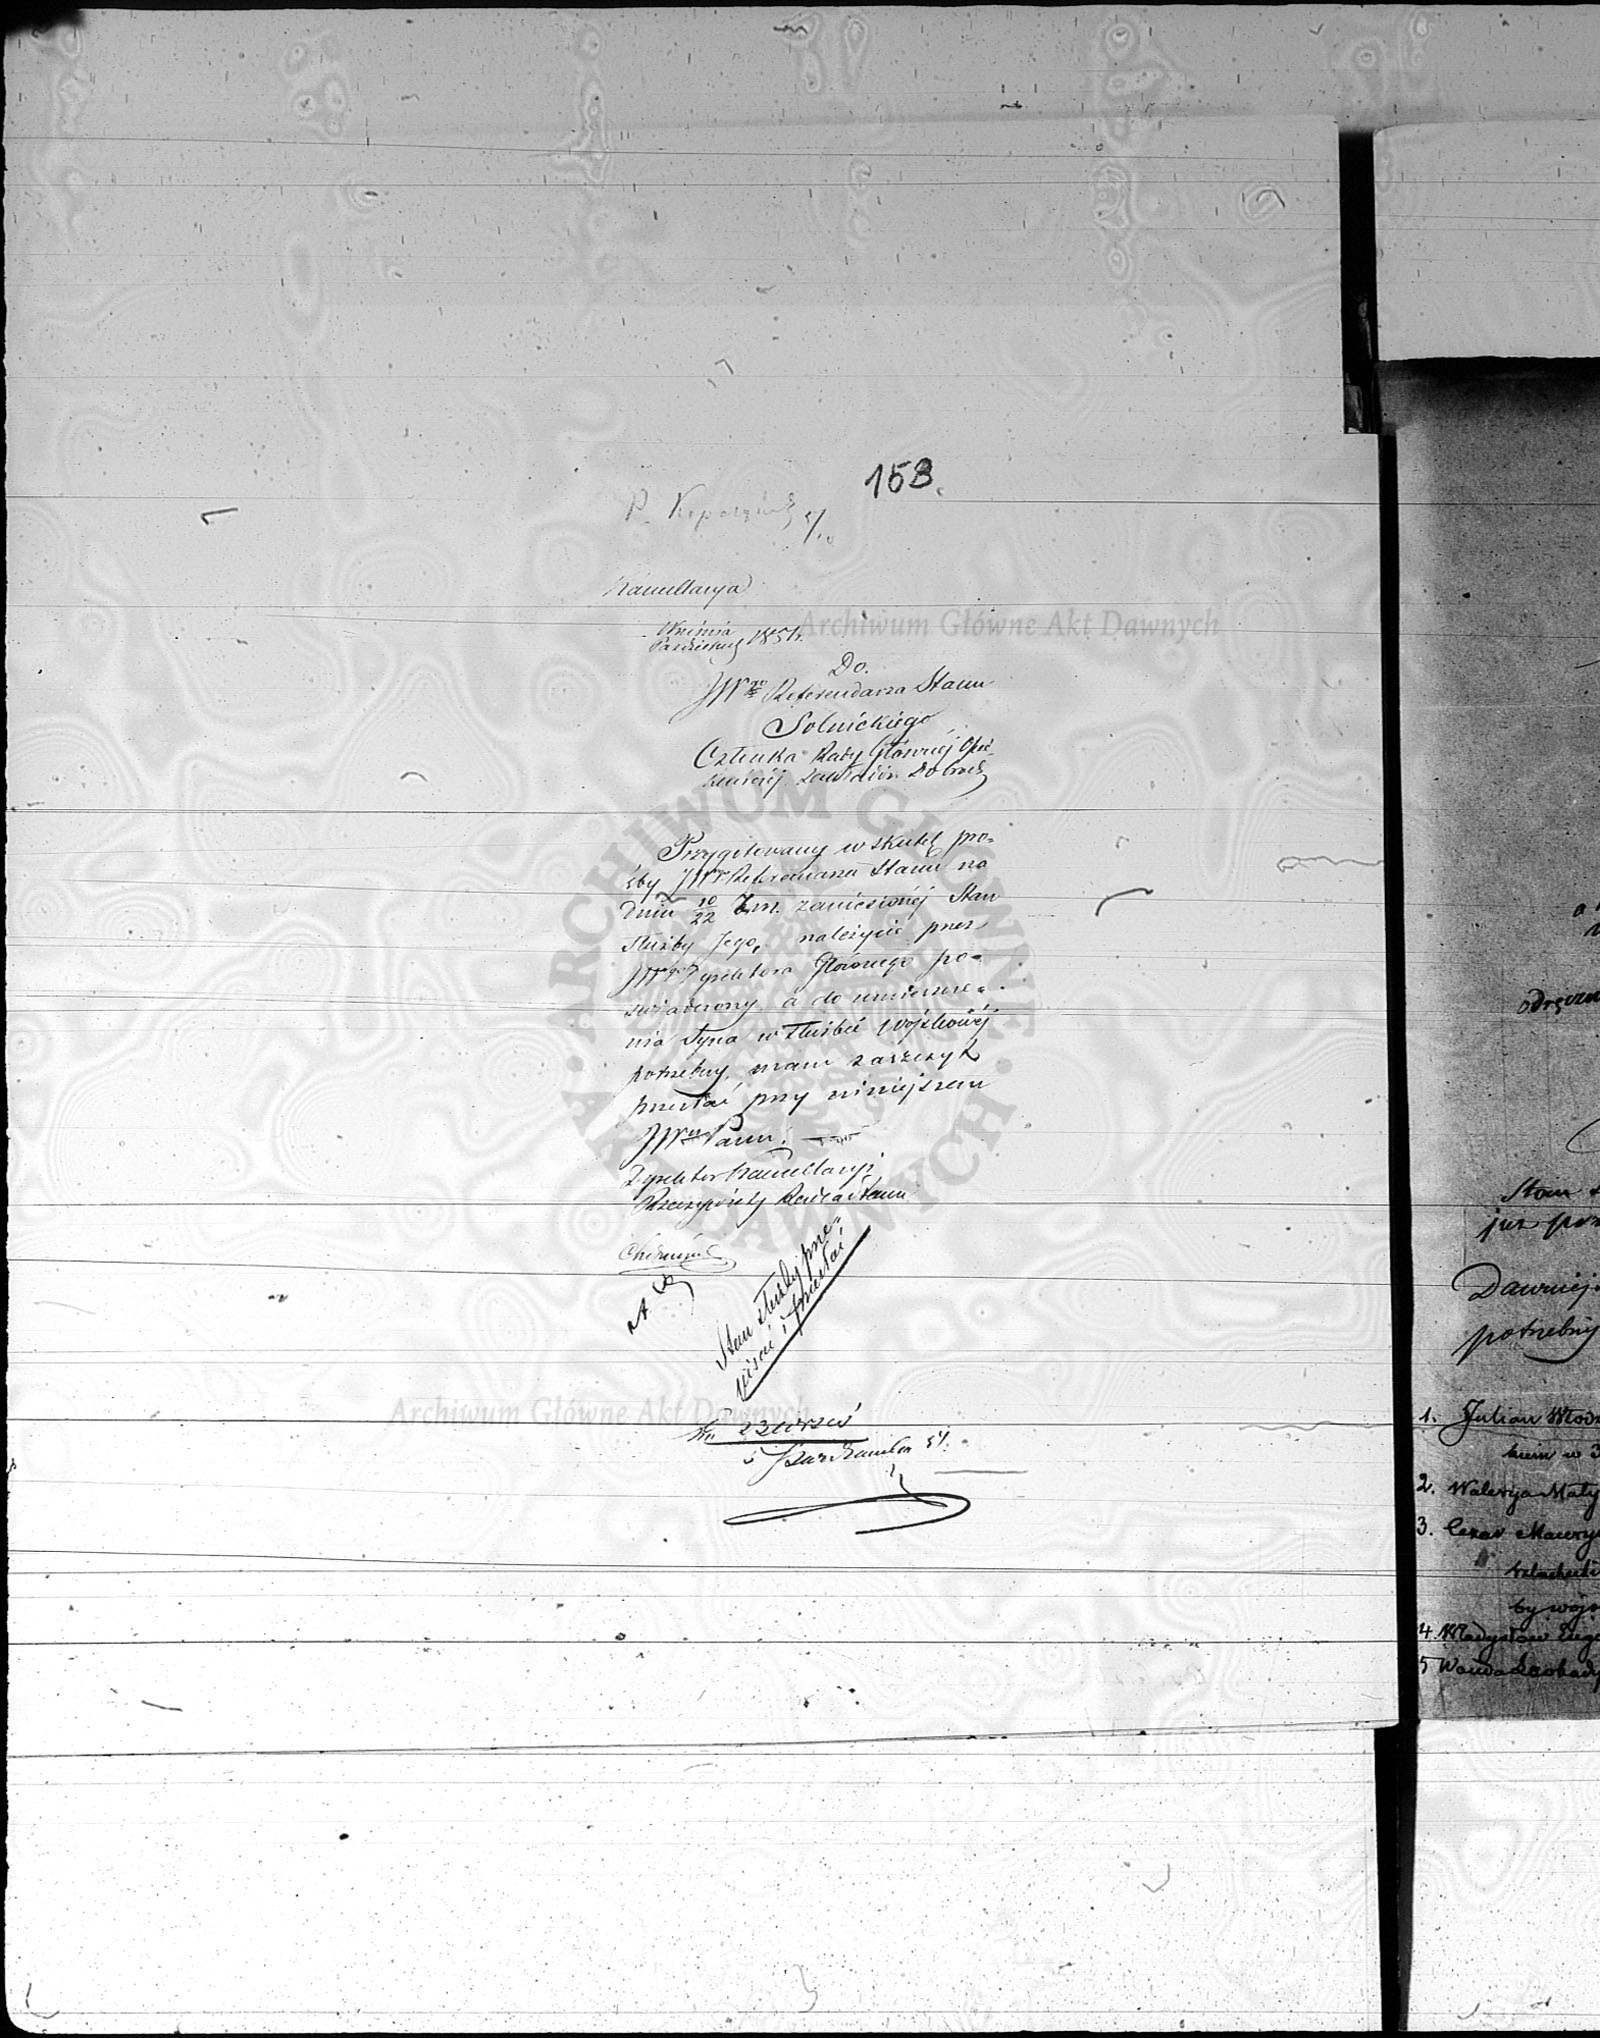 158.
P. Kopczyński 5/10
Kancellarya
Września
Październ. 1851 r.
Do
JWgo Referendarza Stanu
Solnickiego
Członka Rady Głównéj Opie-
kuńczéj Zakładów Dobrocz.
Przygotowany w skutek pro-
źby JWo Referendarza Stanu na
dniu 10/22 b.m. zaniesionéj Stan
Służby Jego, należycie przez
JWo Dyrektora Głównego po-
świadczony a do umieszcze-
nia Syna w służbie Wojskowéj
potrzebny, mam zaszczyt
przesłać przy niniejszem
JWu Panu.
Dyrektor Kancellaryi
Rzeczywisty Radca Stanu
Stan służby prze-
pisać i przesłać
23 Wrześ
5 Paździer 51.
Archiwum Główne Akt Dawnych
Archiwum Główne Akt Dawnych
ARCHIWUM GŁÓWNE AKT DAWNYCH
odręczn
Stan
już
Dawniej
potrzebny
1. Julian Włod
2. Walerya Mały
3. Cezar Maury
4. Władysław Euge
5 Wanda